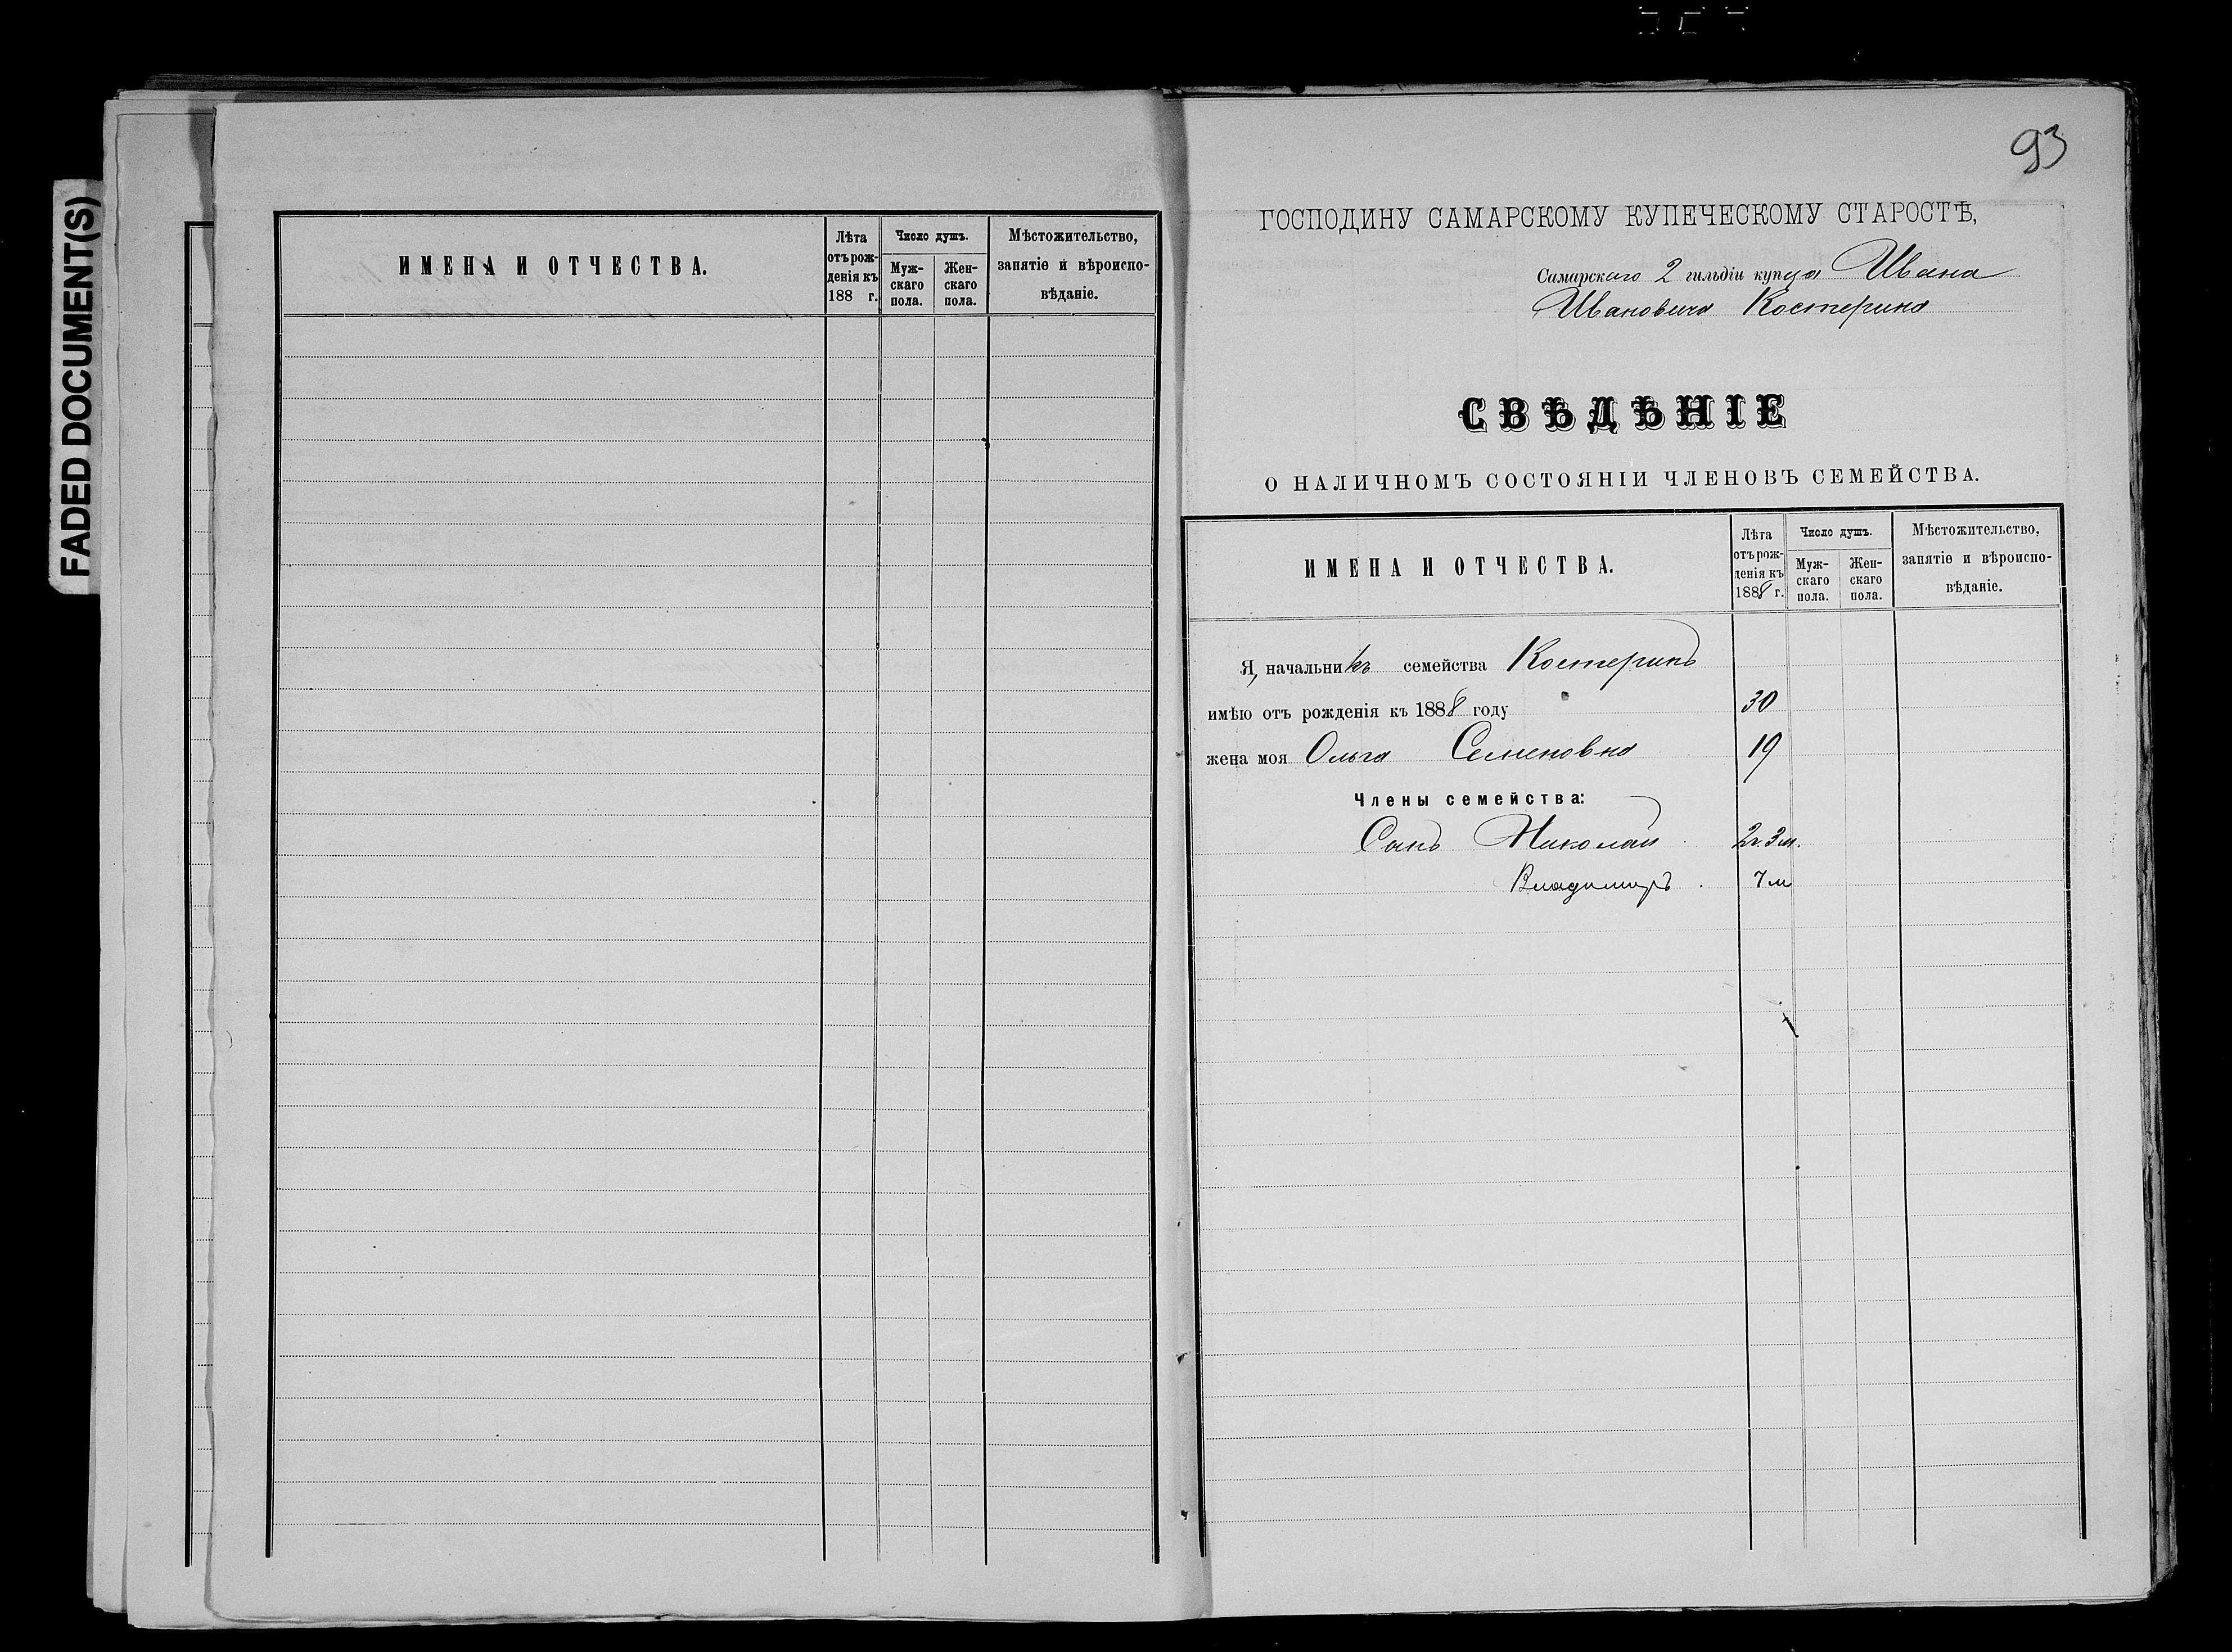 FADED DOCUMENT(S)
ИМЕНА И ОТЧЕСТВА.
Лѣта отъ рожденія къ 188 г.
Число душъ.
Мужскаго пола.
Женскаго пола.
Мѣстожительство, занятіе и вѣроисповѣданіе.
93
ГОСПОДИНУ САМАРСКОМУ КУПЕЧЕСКОМУ СТАРОСТѢ,
Самарскаго 2 гильдіи купца Ивана
Ивановича Костерина
СВѢДѢНІЕ
О НАЛИЧНОМЪ СОСТОЯНІИ ЧЛЕНОВЪ СЕМЕЙСТВА.
ИМЕНА И ОТЧЕСТВА.
Лѣта отъ рожденія къ 1888 г.
Число душъ.
Мужскаго пола.
Женскаго пола.
Мѣстожительство, занятіе и вѣроисповѣданіе.
Я, начальникъ семейства Костеринъ
имѣю отъ рожденія къ 1888 году 30
жена моя Ольга Семеновна 19
Члены семейства:
Сынъ Николай 2г. 3м.
Владимиръ 7м